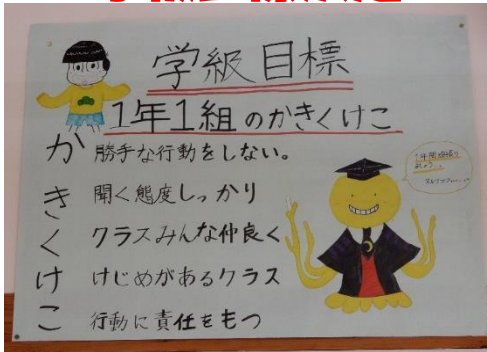 学級目標
1年1組のかきくけこ
か 勝手な行動をしない。
き 聞く態度しっかり
く クラスみんな仲良く
け けじめがあるクラス
こ 行動に責任をもつ
1年間頑張り
ましょう